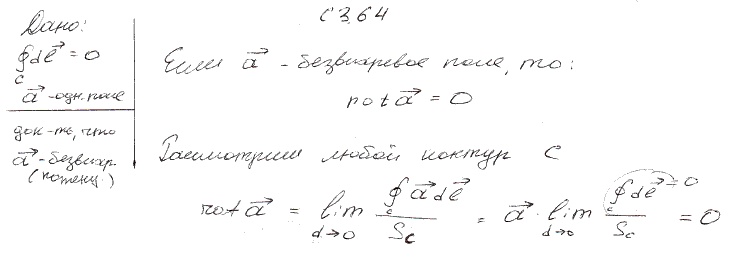 С 364
Дано:
∮_c dℓ⃗ = 0
a⃗ - одн. поле
док-ть, что
a⃗ - безвихр.
(потенц.)
Если a⃗ - безвихревое поле, то:
rot a⃗ = 0
Рассмотрим любой контур C
rot a⃗ = lim_{d→0} (∮_c a⃗ dℓ⃗)/S_c = a⃗ · lim_{d→0} (∮_c dℓ⃗ = 0)/S_c = 0